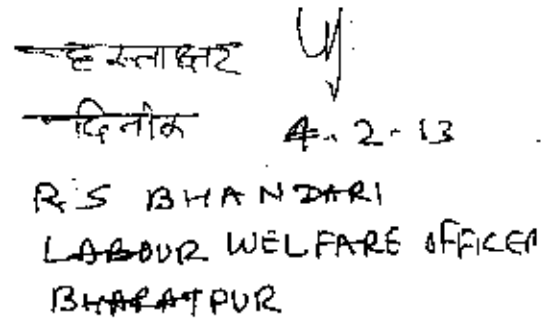 हस्ताक्षर
दिनांक 4.2.13
R.S BHANDARI
LABOUR WELFARE OFFICER
BHARATPUR